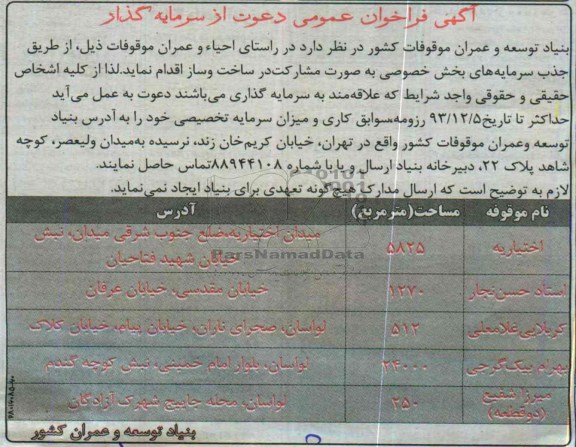 آگهی فراخوان عمومی دعوت از سرمایه گذار
بنیاد توسعه و عمران موقوفات کشور در نظر دارد در راستای احیاء و عمران موقوفات ذیل، از طریق
جذب سرمایه‌های بخش خصوصی به صورت مشارکت‌در ساخت وساز اقدام نماید.لذا از کلیه اشخاص
حقیقی و حقوقی واجد شرایط که علاقه‌مند به سرمایه گذاری می‌باشند دعوت به عمل می‌آید
حداکثر تا تاریخ۹۳/۱۲/۵ رزومه،سوابق کاری و میزان سرمایه تخصیصی خود را به آدرس بنیاد
توسعه وعمران موقوفات کشور واقع در تهران، خیابان کریم‌خان زند، نرسیده به‌میدان ولیعصر، کوچه
شاهد پلاک ۲۲، دبیرخانه بنیاد ارسال و یا با شماره ۸۸۹۴۴۱۰۸تماس حاصل نمایند.
لازم به توضیح است که ارسال مدارک هیچ‌گونه تعهدی برای بنیاد ایجاد نمی‌نماید.
نام موقوفه مساحت(مترمربع) آدرس
اختیاریه ۵۸۲۵ میدان اختیاریه،ضلع جنوب شرقی میدان، نبش
شهید فتاحیان
ParsNamadData
استاد حسن‌نجار ۱۲۷۰ خیابان مقدسی، خیابان عرفان
کربلایی‌غلامعلی ۵۱۲ لواسان، صحرای ناران، خیابان پیام، خیابان کلاک
بهرام بیک‌گرجی ۲۴۰۰۰ لواسان، بلوار امام خمینی، نبش کوچه گندم
میرزا شفیع
(دوقطعه) ۲۵۰ لواسان، محله شهرک آزادگان
بنیاد توسعه و عمران کشور